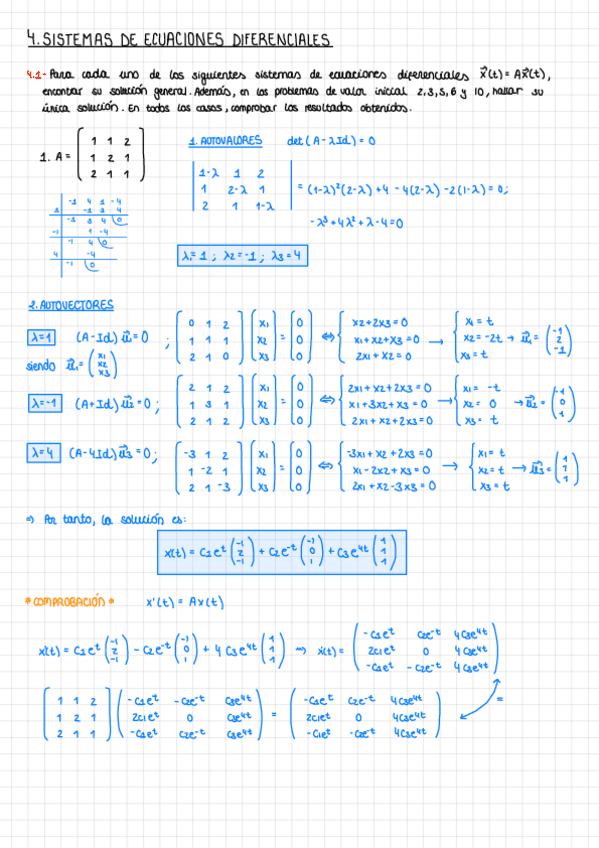 4. SISTEMAS DE ECUACIONES DIFERENCIALES
4.1- Para cada uno de los siguientes sistemas de ecuaciones diferenciales x⃗(t) = Ax⃗(t),
encontrar su solución general. Además, en los problemas de valor inicial 2,3,5,6 y 10, hallar su
única solución. En todos los casos, comprobar los resultados obtenidos.
1. A = [1 1 2; 1 2 1; 2 1 1]
1. AUTOVALORES det(A - λId) = 0
|1-λ 1 2; 1 2-λ 1; 2 1 1-λ| = (1-λ)²(2-λ) + 4 - 4(2-λ) - 2(1-λ) = 0;
-λ³ + 4λ² + λ - 4 = 0
-1 4 1 -4
1 -1 3 4
-1 3 4 0
-1 1 -4
-1 4 0
4 -4
-1 0
λ₁ = 1 ; λ₂ = -1 ; λ₃ = 4
2. AUTOVECTORES
λ=1 (A-Id)u⃗₁ = 0 ; [0 1 2; 1 1 1; 2 1 0] [x₁; x₂; x₃] = [0; 0; 0] ⇔ { x₂+2x₃=0; x₁+x₂+x₃=0; 2x₁+x₂=0 → { x₁=t; x₂=-2t; x₃=t → u⃗₁ = (-1; 2; -1)
siendo u⃗₁ = (x₁; x₂; x₃)
λ=-1 (A+Id)u⃗₂ = 0 ; [2 1 2; 1 3 1; 2 1 2] [x₁; x₂; x₃] = [0; 0; 0] ⇔ { 2x₁+x₂+2x₃=0; x₁+3x₂+x₃=0; 2x₁+x₂+2x₃=0 → { x₁=-t; x₂=0; x₃=t → u⃗₂ = (-1; 0; 1)
λ=4 (A-4Id)u⃗₃ = 0 ; [-3 1 2; 1 -2 1; 2 1 -3] [x₁; x₂; x₃] = [0; 0; 0] ⇔ { -3x₁+x₂+2x₃=0; x₁-2x₂+x₃=0; 2x₁+x₂-3x₃=0 → { x₁=t; x₂=t; x₃=t → u⃗₃ = (1; 1; 1)
⇒ Por tanto, la solución es:
x(t) = C₁e^t (-1; 2; -1) + C₂e^-t (-1; 0; 1) + C₃e^4t (1; 1; 1)
*COMPROBACIÓN* x'(t) = Ax(t)
x(t) = C₁e^t (-1; 2; -1) - C₂e^-t (-1; 0; 1) + 4C₃e^4t (1; 1; 1) ⇒ ẋ(t) = (-C₁e^t C₂e^-t 4C₃e^4t; 2C₁e^t 0 4C₃e^4t; -C₁e^t -C₂e^-t 4C₃e^4t)
[1 1 2; 1 2 1; 2 1 1] (-C₁e^t -C₂e^-t C₃e^4t; 2C₁e^t 0 C₃e^4t; -C₁e^t C₂e^-t C₃e^4t) = (-C₁e^t C₂e^-t 4C₃e^4t; 2C₁e^t 0 4C₃e^4t; -C₁e^t -C₂e^-t 4C₃e^4t) =